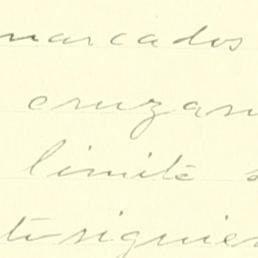 marcados
cruzan
limite s
te siguien